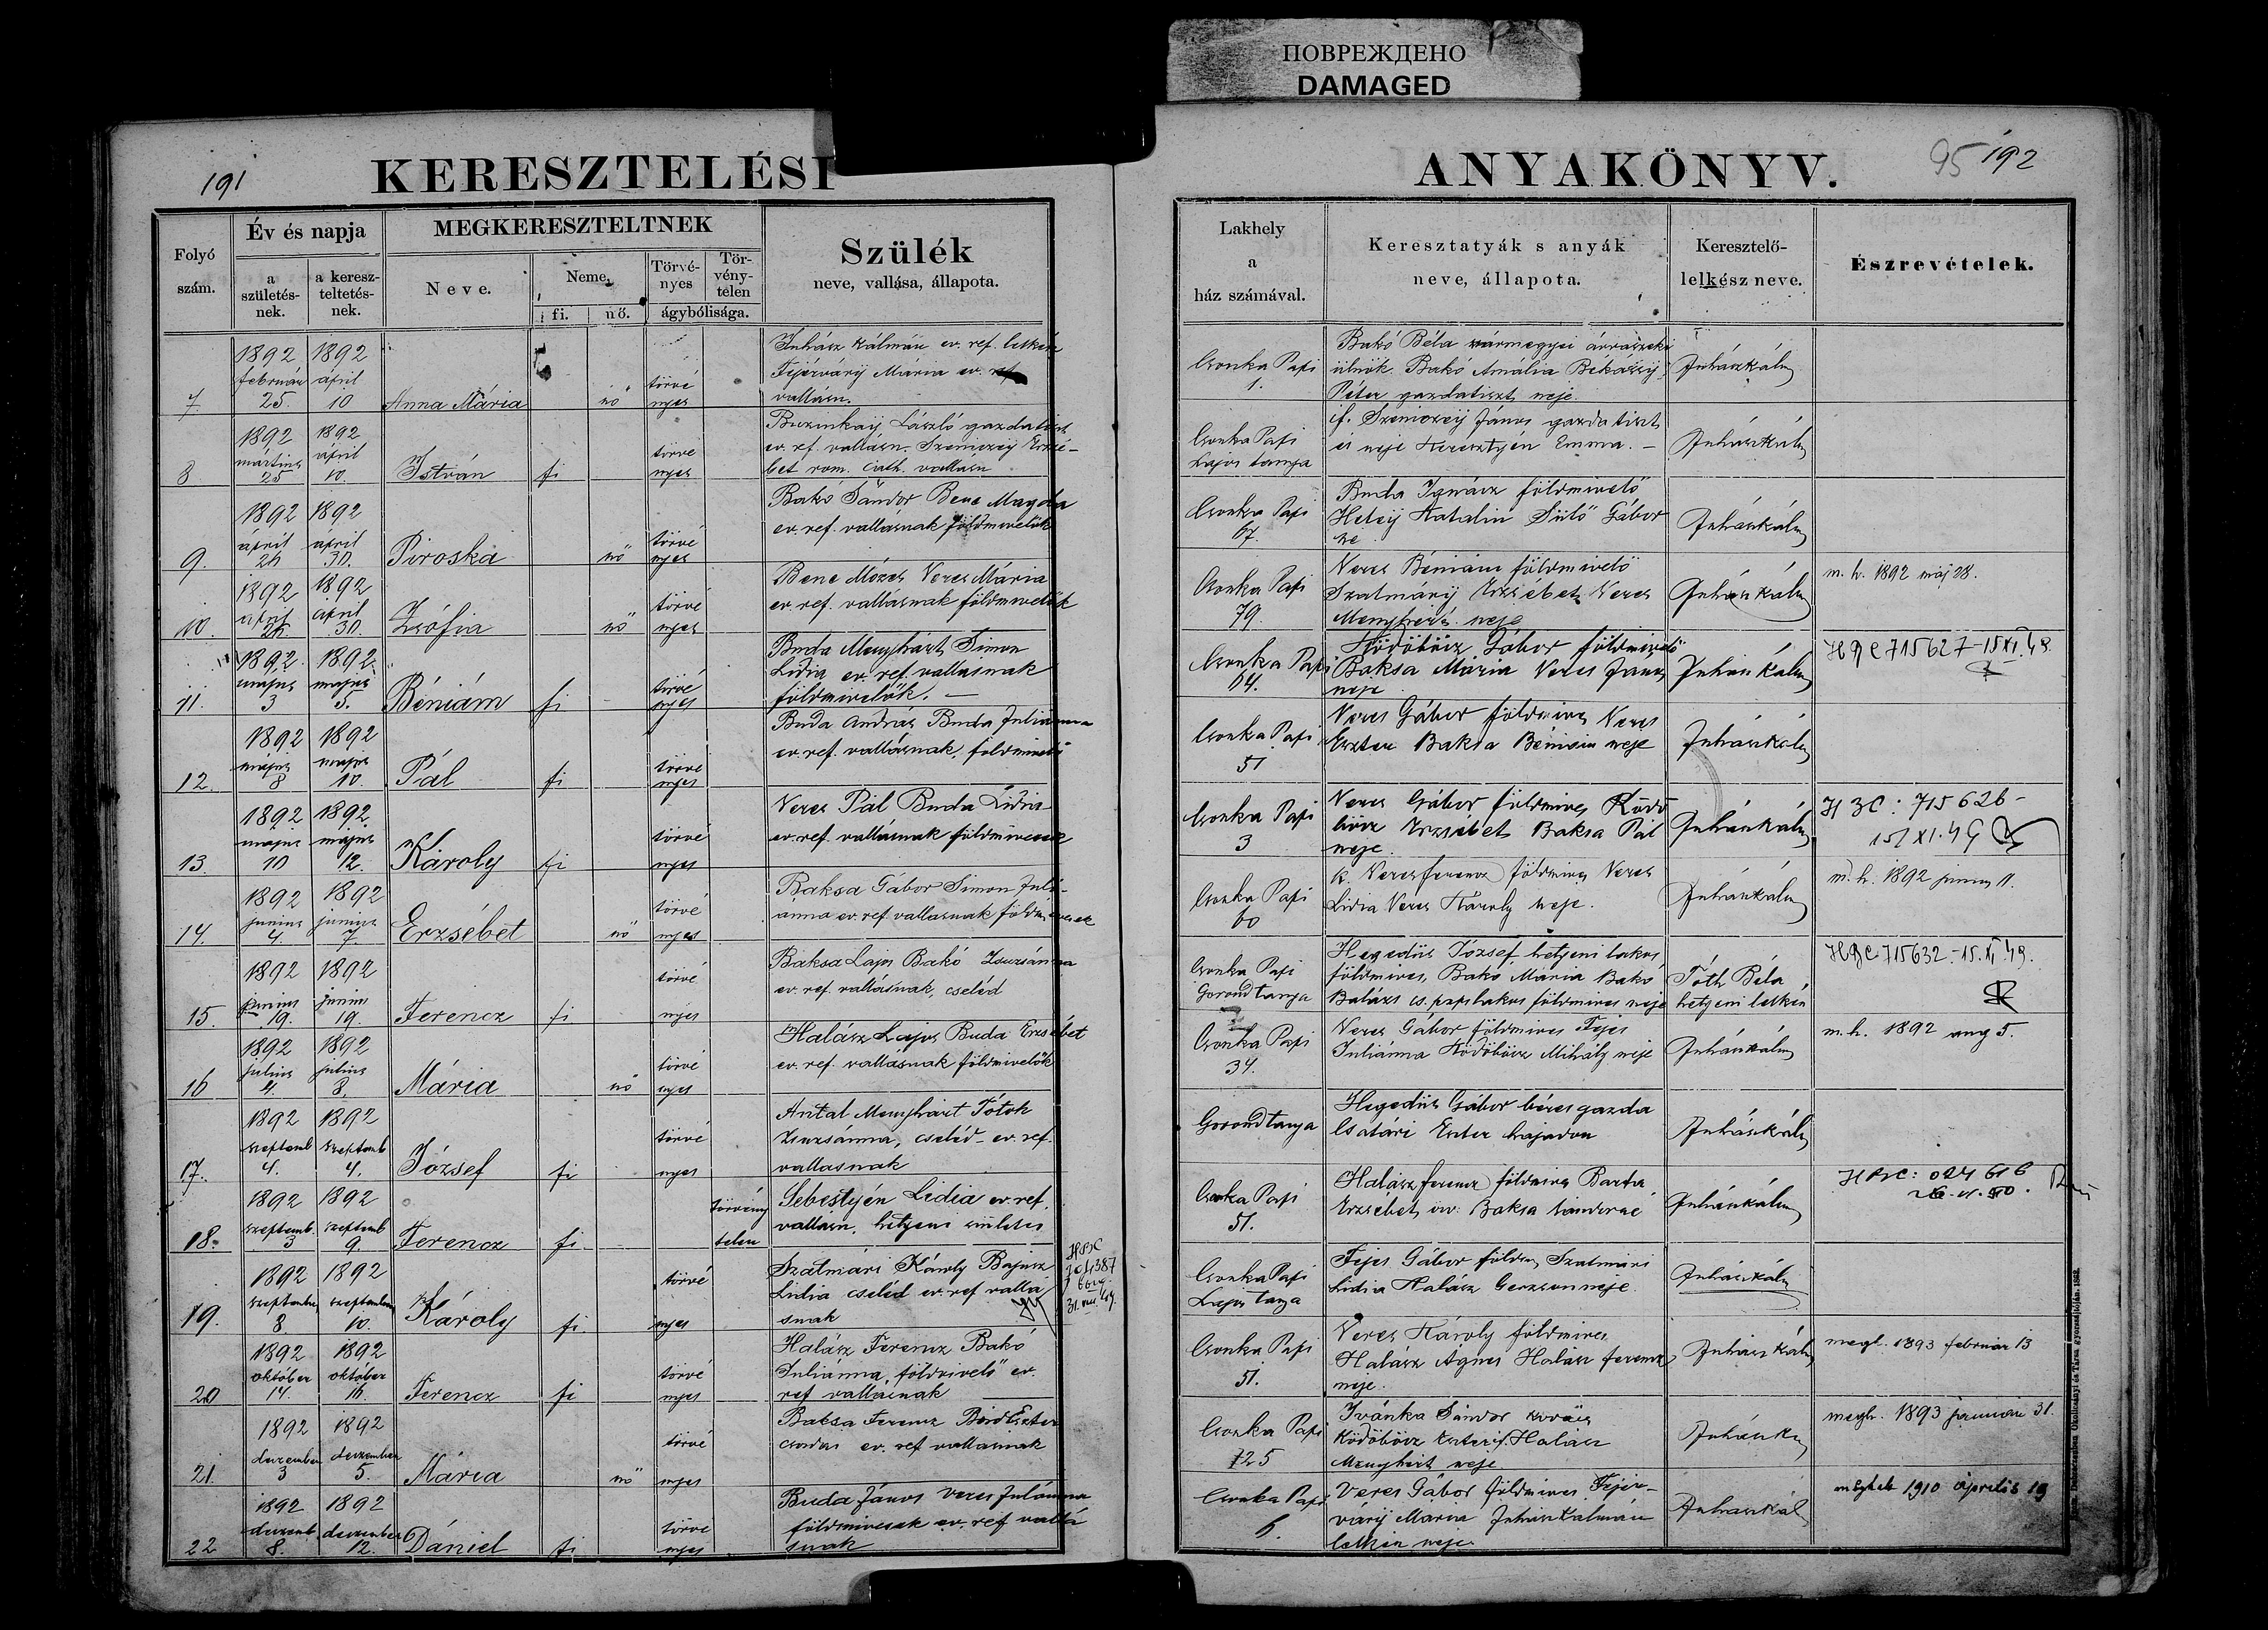 ПОВРЕЖДЕНО
DAMAGED
191
KERESZTELÉSI
ANYAKÖNYV.
95 192
Folyó szám.
Év és napja
a születés-nek.
a keresz-teltetés-nek.
MEGKERESZTELTNEK
Neve.
Neme.
fi.
nő.
Törvé-nyes
Tör-vény-telen
ágybólisága.
Szülék
neve, vallása, állapota.
Lakhely
a
ház számával.
Keresztatyák s anyák
neve, állapota.
Keresztelő-
lelkész neve.
Észrevételek.
7 1892 február 25. 1892 ápril 10 Anna Mária nő törvé nyes
Juhász Kálmán ev. ref. lelkész
Fejérváry Mária ev. ref
vallásu.
Csonka Papi 1.
Bakó Béla vármegyei árvaszéki
ülnök. Bakó Amália Békássy
Péter gazdatiszt neje
Juhászkálm
8 1892 mártius 25 1892 ápril 10. István fi törvé nyes
László gazdatiszt
ev. rf. vallásu. Erzsé-
bet rom. cath. vallásu
Csonka Papi Lajos tanya
if. János gazdatiszt
és neje Keresztyén Emma. —
Juhászkálm
9. 1892 april 1892 april 30. Piroska nő törvé nyes
Bakó Sándor Bene Magda
ev. ref. vallásnak földmivelők
Csonka Papi 67.
Buda Ignácz földmivelő
Hetey Katalin Sütő Gábor
ne
Juhászkálm
10. 1892 april 1892 april 30. Zsófia nő törvé nyes
Bene Mózes Veres Mária
ev. ref. vallásnak földmivelők
Csonka Papi 79.
Veres Béniám földmivelő
Szatmáry Erzsébet Veres
neje
Juhászkálm
m. h. 1892 máj 28.
11. 1892 május 3 1892 május 5. Béniám fi törvé nyes
Buda Menyhárt Simon
Lidia ev. ref. vallásnak
földmivelők. —
Csonka Papi 64.
Ködöböcz Gábor földmivelő
Baksa Mária Veres János
neje
Juhászkálm
715627-15 XI.49.
12. 1892 május 8 1892 május 10. Pál fi törvé nyes
Buda András Buda Juliánna
ev. ref. vallásnak, földmivelő
Csonka Papi 51
Veres Gábor földmives Veres
Eszter Baksa Béniám neje
Juhászkálm
13. 1892 május 10 1892 május 12. Károly fi törvé nyes
Veres Pál Buda Lidia
ev. ref. vallásnak földmivesek
Csonka Papi 3
Veres Gábor földmives Ködö
böcz Erzsébet Baksa Pál
neje.
Juhászkálm
715626-
15/XI.49
14. 1892 junius 4. 1892 junius 7 Erzsébet nő törvé nyes
Baksa Gábor Simon Juli-
ánna ev. ref. vallásnak földmivesek
Csonka Papi 60
k. Veres ferencz földmives Veres
Lidia Veres Károly neje.
Juhászkálm
m. h. 1892 junius 11.
15. 1892 junius 19. 1892 junius 19. Ferencz fi törvé nyes
Baksa Lajos Bakó Zsuzsánna
ev. ref. vallásnak, cseléd
Csonka Papi Gorond tanya
Hegedüs József hetyeni lakos
földmives, Bakó Mária Bakó
Balázs cs. papi lakos földmives neje
Tóth Béla
hetyeni lelkész
715632-15.XI.49.
16 1892 julius 4. 1892 julius 8. Mária nő törvé nyes
Halász Lajos Buda Erzsébet
ev. ref. vallásnak földmivelők
Csonka Papi 34.
Veres Gábor földmives Fejes
Juliánna Ködöböcz Mihály neje
Juhászkálm
m. h. 1892 aug 5.
17. 1892 szeptemb 4. 1892 szeptemb 4. József fi törvé nyes
Antal Menyhárt Tótok
Zsuzsánna, cseléd ev. ref.
vallásnak
Gorond tanya
Hegedüs Gábor béres gazda
Csatári Eszter hajadon
Juhászkálm
18. 1892 szeptemb. 3 1892 szeptemb 9. Ferencz fi. törvény telen
Sebestyén Lidia ev. ref.
vallásu, hetyeni születés
Csonka Papi 51.
Halász ferencz földmives Barta
Erzsébet öv. Baksa Sándorné
Juhászkálm
19. 1892 szeptember 8. 1892 szeptember 10. Károly fi. törvé nyes
Szatmári Károly Bajusz
Lidia cseléd ev. ref vallá
snak
Csonka Papi Lajos tanya
Fejes Gábor földm Szatmári
Lidia Halász Gerzson neje.
Juhászkálm
20 1892 október 14. 1892 október 16. Ferencz fi törvé nyes
Halász Ferencz Bakó
Juliánna, földmivelő ev.
ref vallásnak
Csonka Papi 51.
Veres Károly földmives
Halász Ágnes Halász ferencz
neje.
Juhászkálm
megh. 1893 február 13
21. 1892 deczember 3 1892 deczember 5. Mária nő törvé nyes
Baksa Ferencz Eszter
ev. ref vallásnak
Csonka Papi 125
Ivánka Sándor
Ködöböcz Eszter if. Halász
Menyhért neje
megh. 1893 január 31.
22 1892 deczemb. 8. 1892 deczember 12. Dániel fi törvé nyes
Buda János Veres Juliánna
földmivesek ev. ref vallá
snak
Csonka Papi 6.
Veres Gábor földmives Fejér-
váry Mária Juhász Kálmán
lelkész neje
Juhászkál
1910 április 19